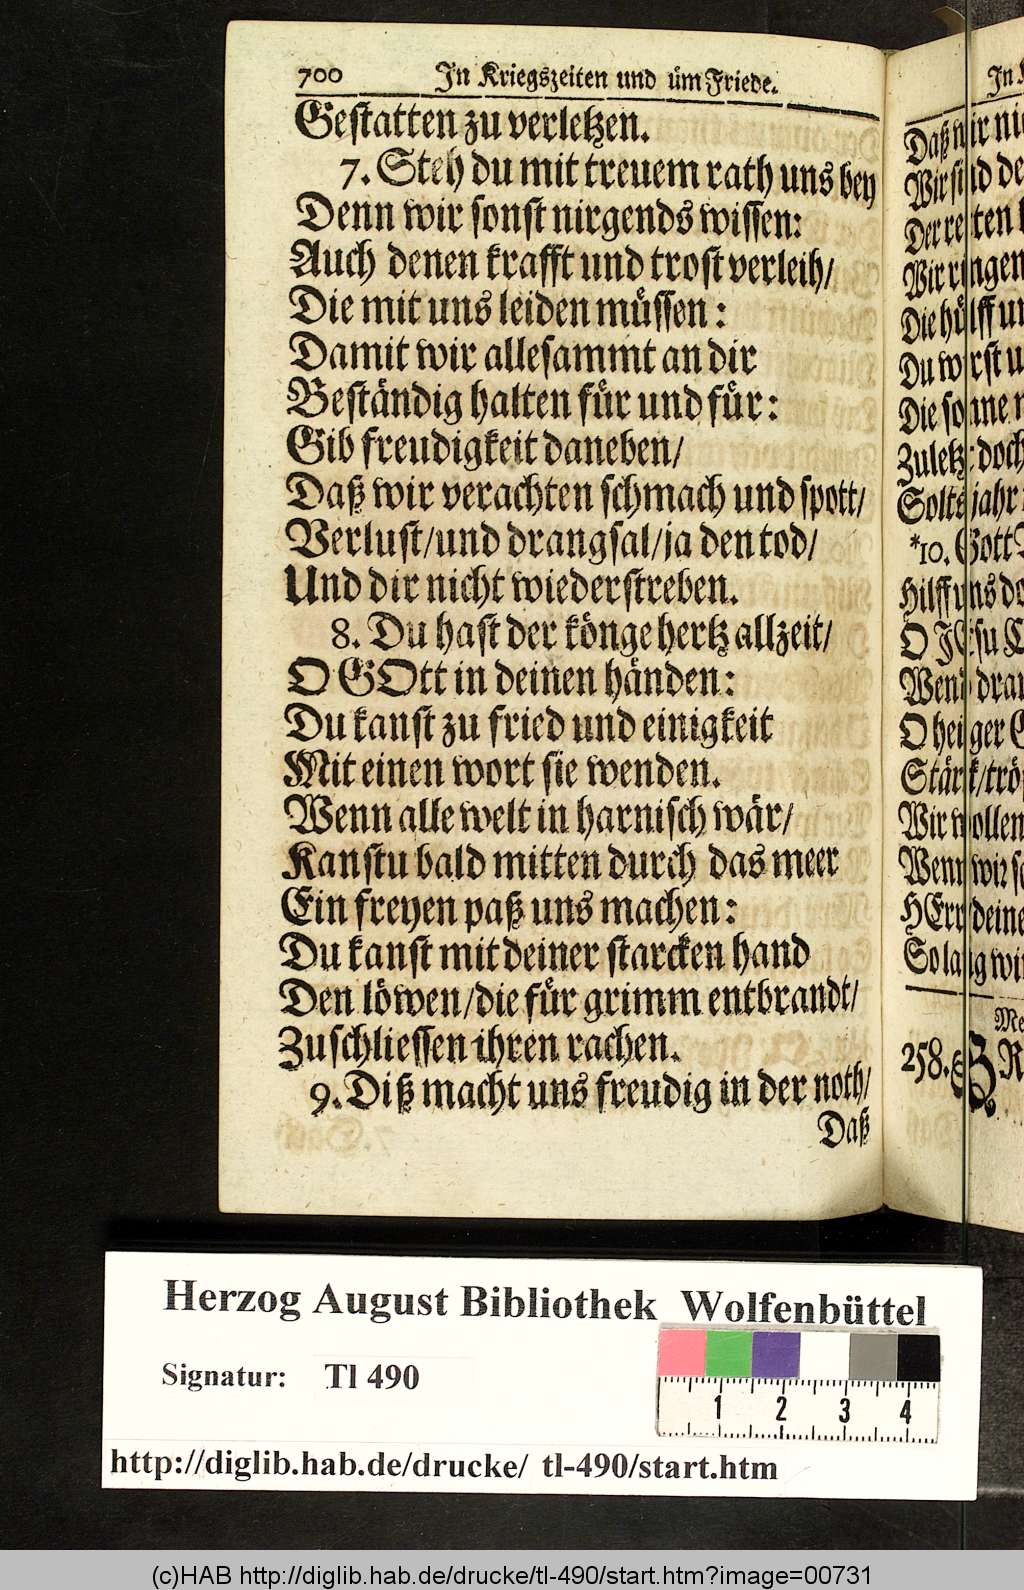 700 In Kriegszeiten und üm Friede.
Gestatten zu verletzen.
7. Steh du mit treuem rath uns bey
Denn wir sonst nirgends wissen:
Auch denen krafft und trost verleih/
Die mit uns leiden müssen:
Damit wir allesammt an dir
Beständig halten für und für:
Gib freudigkeit daneben/
Daß wir verachten schmach und spott/
Verlust/und drangsal/ja den tod/
Und dir nicht wiederstreben.
8. Du hast der könge hertz allzeit/
O GOtt in deinen händen:
Du kanst zu fried und einigkeit
Mit einen wort sie wenden.
Wenn alle welt in harnisch wär/
Kanstu bald mitten durch das meer
Ein freyen paß uns machen:
Du kanst mit deiner starcken hand
Den löwen/die für grimm entbrandt/
Zuschliessen ihren rachen.
9. Diß macht uns freudig in der noth/
Daß
In
Daß wir
Wir sind
Der
Wir ringen
Die hülff
Du
Die sonne
Zuletzt doch
Solts jahr
*10. Gott
Hilff uns
O JEsu
Wend
O
Stärk/
Wir wollen
Wenn wir
HErr deine
So lang wir
258.
Herzog August Bibliothek Wolfenbüttel
Signatur: Tl 490
1 2 3 4
http://diglib.hab.de/drucke/ tl-490/start.htm
(c)HAB http://diglib.hab.de/drucke/tl-490/start.htm?image=00731